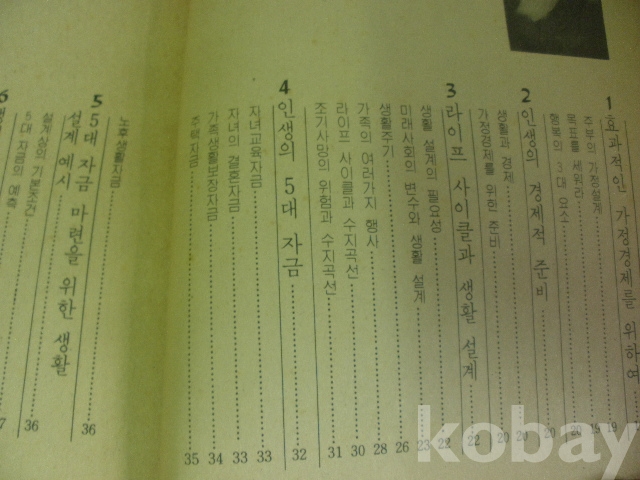 1 효과적인 가정경제를 위하여
주부의 가정설계 19
목표를 세워라 19
행복의 3대 요소 20
2 인생의 경제적 준비 20
생활과 경제 20
가정경제를 위한 준비 20
3 라이프 사이클과 생활 설계 22
생활 설계의 필요성 22
미래사회의 변수와 생활 설계 23
생활주기 26
가족의 여러가지 행사 28
라이프 사이클과 수지곡선 30
조기사망의 위험과 수지곡선 31
4 인생의 5대 자금 32
자녀교육자금 33
자녀의 결혼자금 33
가족생활보장자금 34
주택자금 35
노후생활자금
5 5대 자금 마련을 위한 생활
설계 예시 36
설계상의 기본조건 36
5대 자금의 예측 7
6
kobay